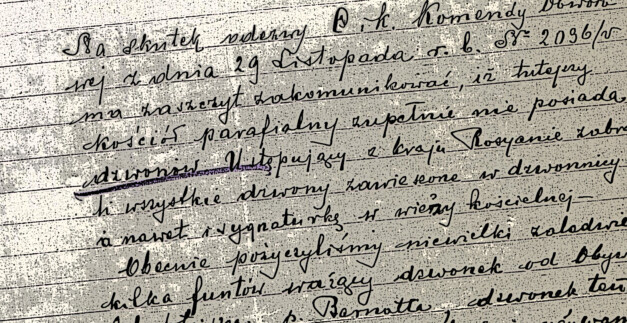 Na skutek odezwy C. k. Komendy Obwodo
wej z dnia 29 Listopada r. b. Nr 2096/V
ma zaszczyt zakomunikować, iż tutejszy
kościół parafialny zupełnie nie posiada
dzwonów. Ustępujący z kraju Rosyanie zabra
li wszystkie dzwony zawieszone w dzwonnicy
a nawet i sygnaturkę w wieży kościelnej –
Obecnie pożyczyliśmy niewielki zaledwie
kilka funtów ważący dzwonek od Obyw
p. Bernatta, dzwonek ten